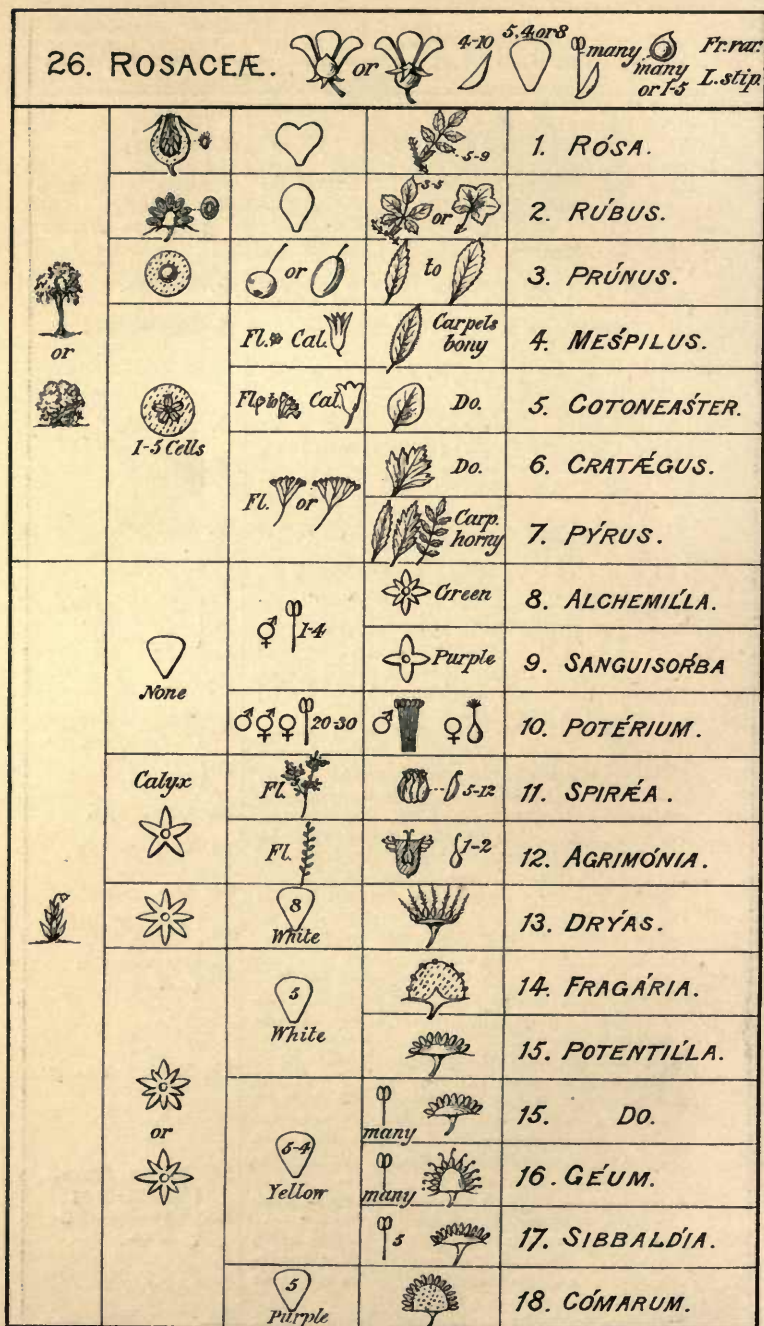 26. ROSACEÆ. or 4-10 5.4.or 8 many many or 1-5 Fr. var. L. stip.
5-9 1. RÓSA.
3-5 or 2. RÚBUS.
or to 3. PRÚNUS.
or
1-5 Cells
Fl. Cal. Carpels bony 4. MEŚPILUS.
Fl. to Cal. Do. 5. COTONEAŚTER.
Fl. or Do. 6. CRATǼGUS.
Carp. horny 7. PÝRUS.
None
♂̣ 1-4 Green 8. ALCHEMIĹLA.
Purple 9. SANGUISOŔBA
♂ ⚥ ♀ 20-30 ♂ ♀ 10. POTÉRIUM.
Calyx
Fl. 5-12 11. SPIRǼA.
Fl. 1-2 12. AGRIMÓNIA.
8 White 13. DRÝAS.
5 White 14. FRAGÁRIA.
15. POTENTIĹLA.
or
5-4 Yellow
many 15. DO.
many 16. GÉUM.
5 17. SIBBALD́IA.
5 Purple 18. CÓMARUM.